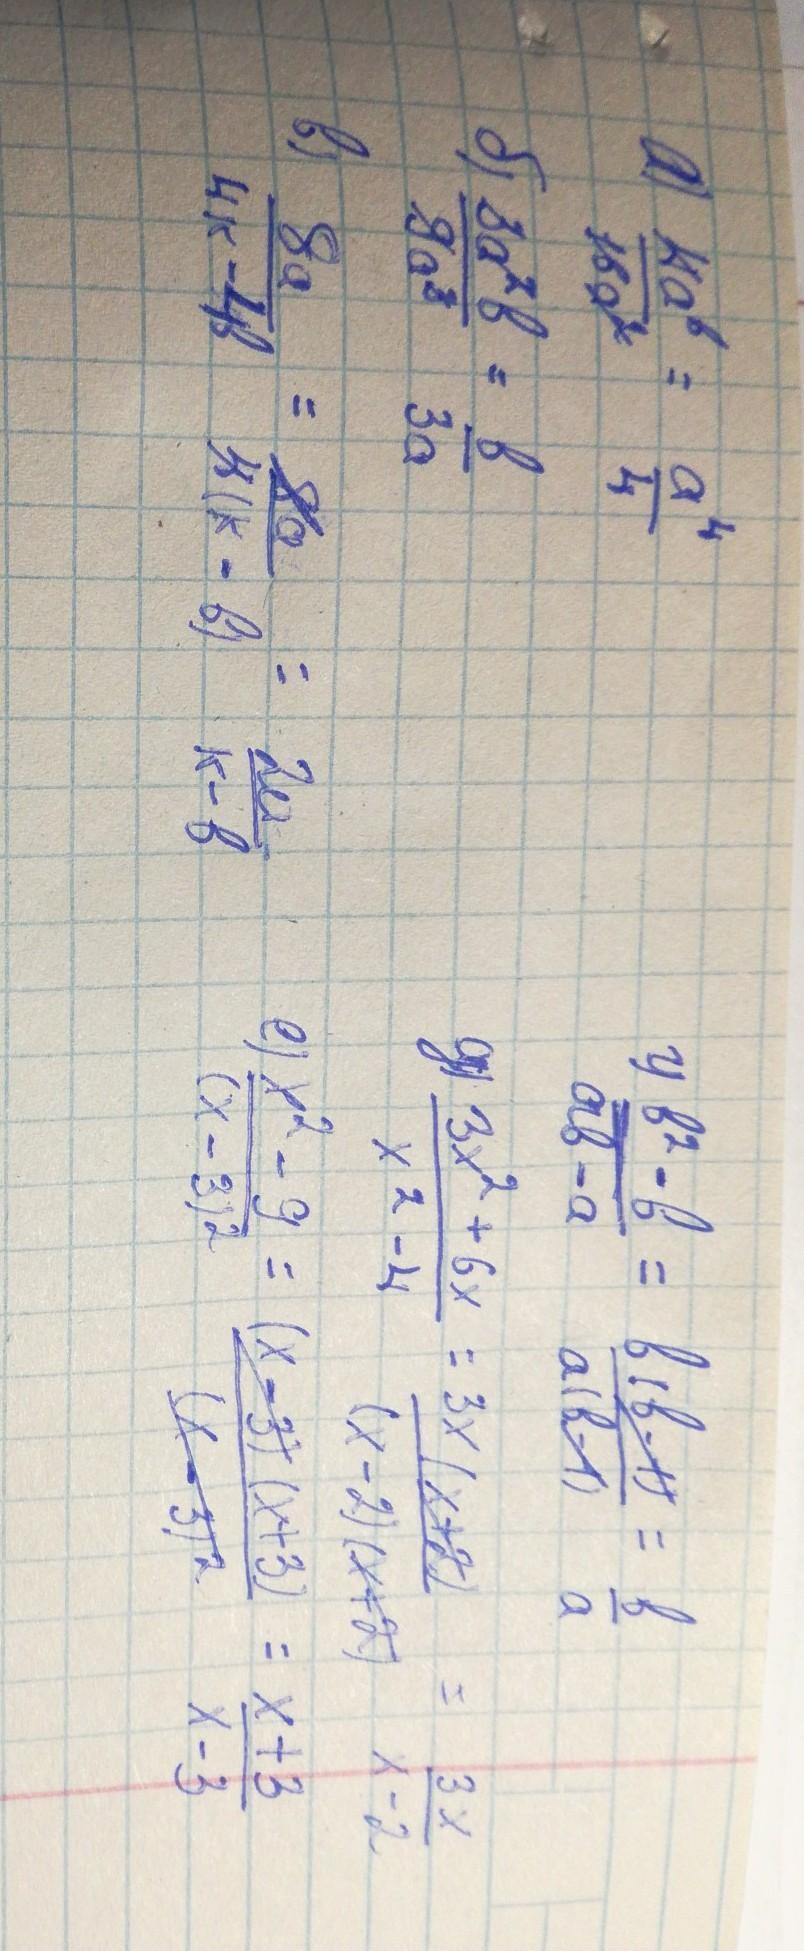 а) 4a⁶/16a² = a⁴/4
б) 3a²b/9a³ = b/3a
в) 8a/4к-4b = 8a/4(к-b) = 2a/к-b
г) b²-b/ab-a = b(b-1)/a(b-1) = b/a
д) 3x²+6x/x²-4 = 3x(x+2)/(x-2)(x+2) = 3x/x-2
е) x²-9/(x-3)² = (x-3)(x+3)/(x-3)² = x+3/x-3